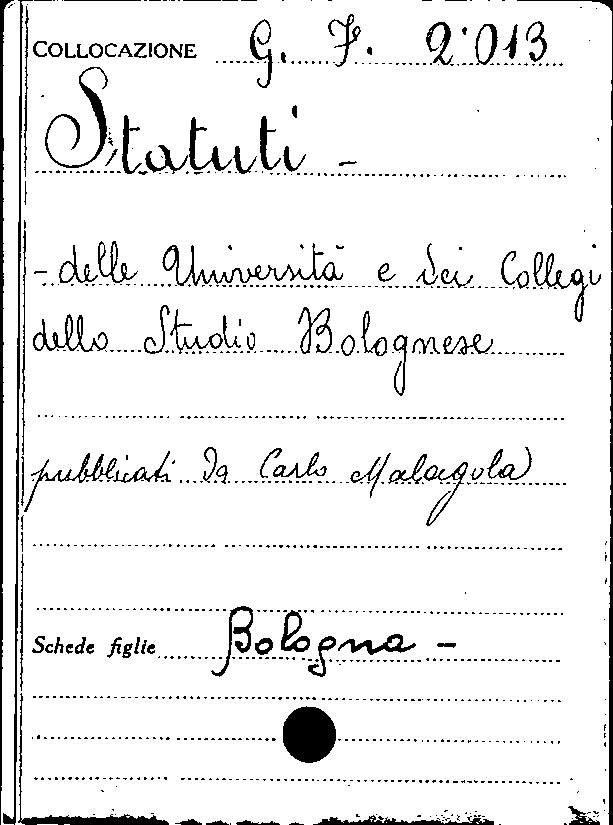 COLLOCAZIONE G. F. 2·013
Statuti -
- delle Università e dei Collegi
dello Studio Bolognese
pubblicati da Carlo Malagola
Schede figlie Bologna -